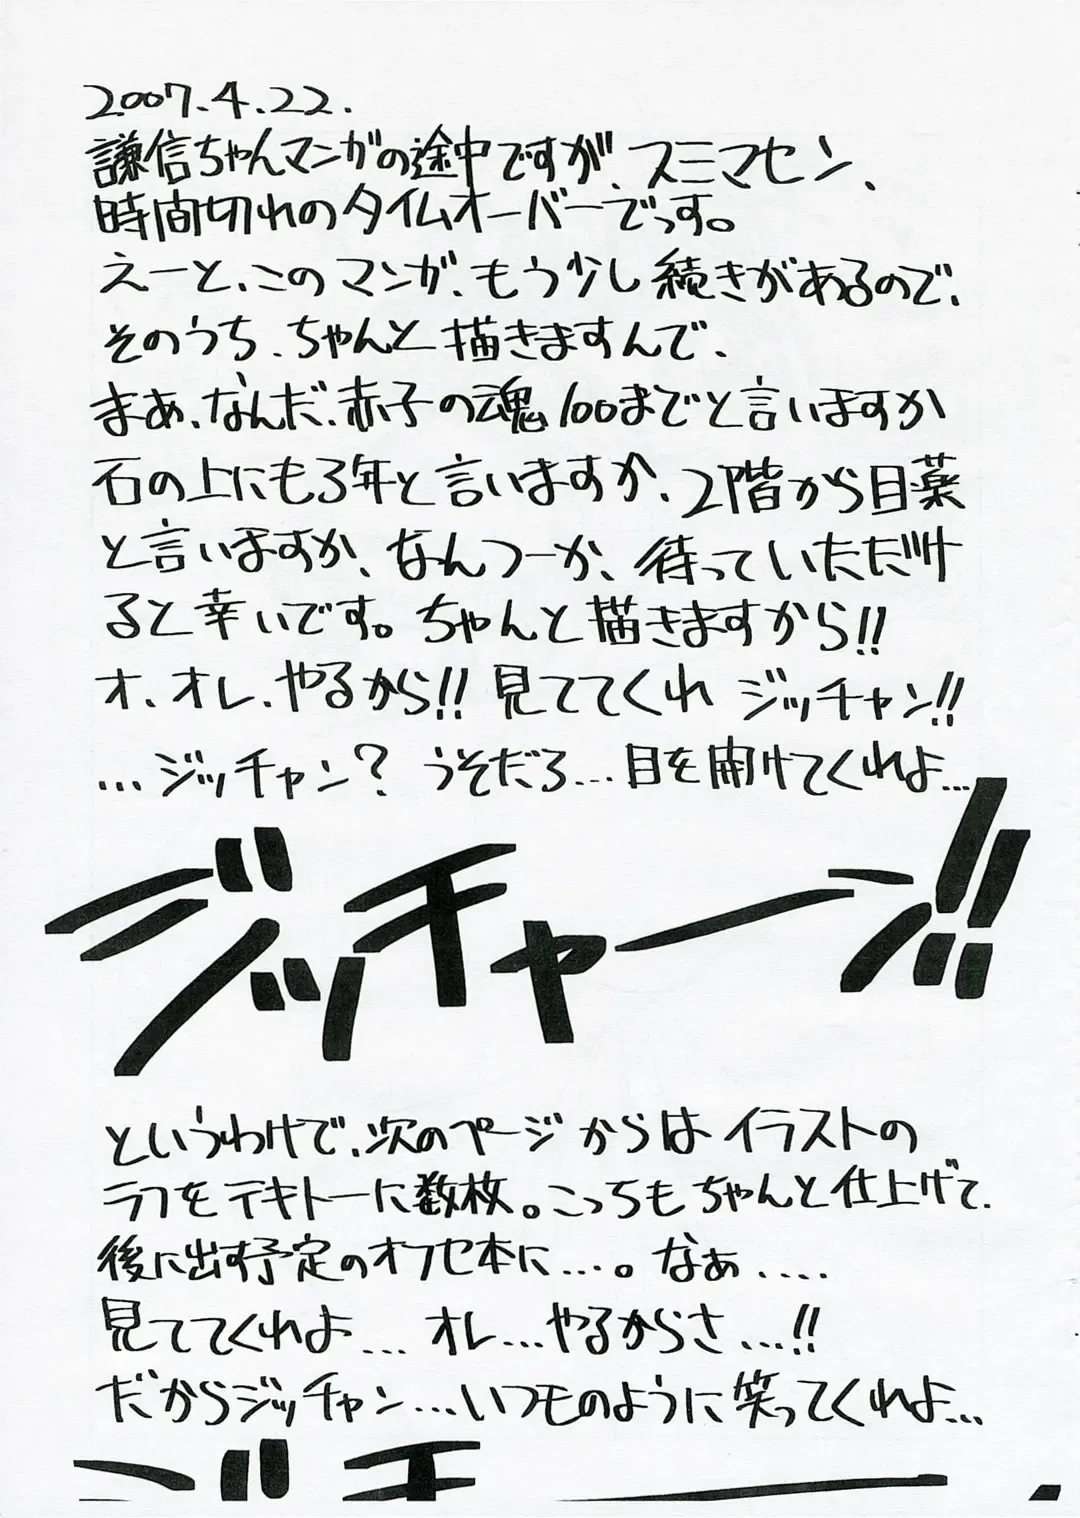 2007.4.22.
謙信ちゃんマンガの途中ですが、スミマセン、
時間切れのタイムオーバーでっす。
えーと、このマンガ、もう少し続きがあるので、
そのうち、ちゃんと描きますんで、
まあ、なんだ、赤子の魂100までと言いますか
石の上にも3年と言いますか、2階から目薬
と言いますか、なんつーか、待っていただけ
ると幸いです。ちゃんと描きますから!!
オ、オレ、やるから!! 見ててくれ ジッチャン!!
…ジッチャン? うそだろ…目を開けてくれよ…
ジッチャーン!!
というわけで、次のページからはイラストの
ラフをテキトーに数枚。こっちもちゃんと仕上げて、
後に出す予定のオフセ本に…。なぁ....
見ててくれよ…オレ…やるからさ…!!
だからジッチャン…いつものように笑ってくれよ…